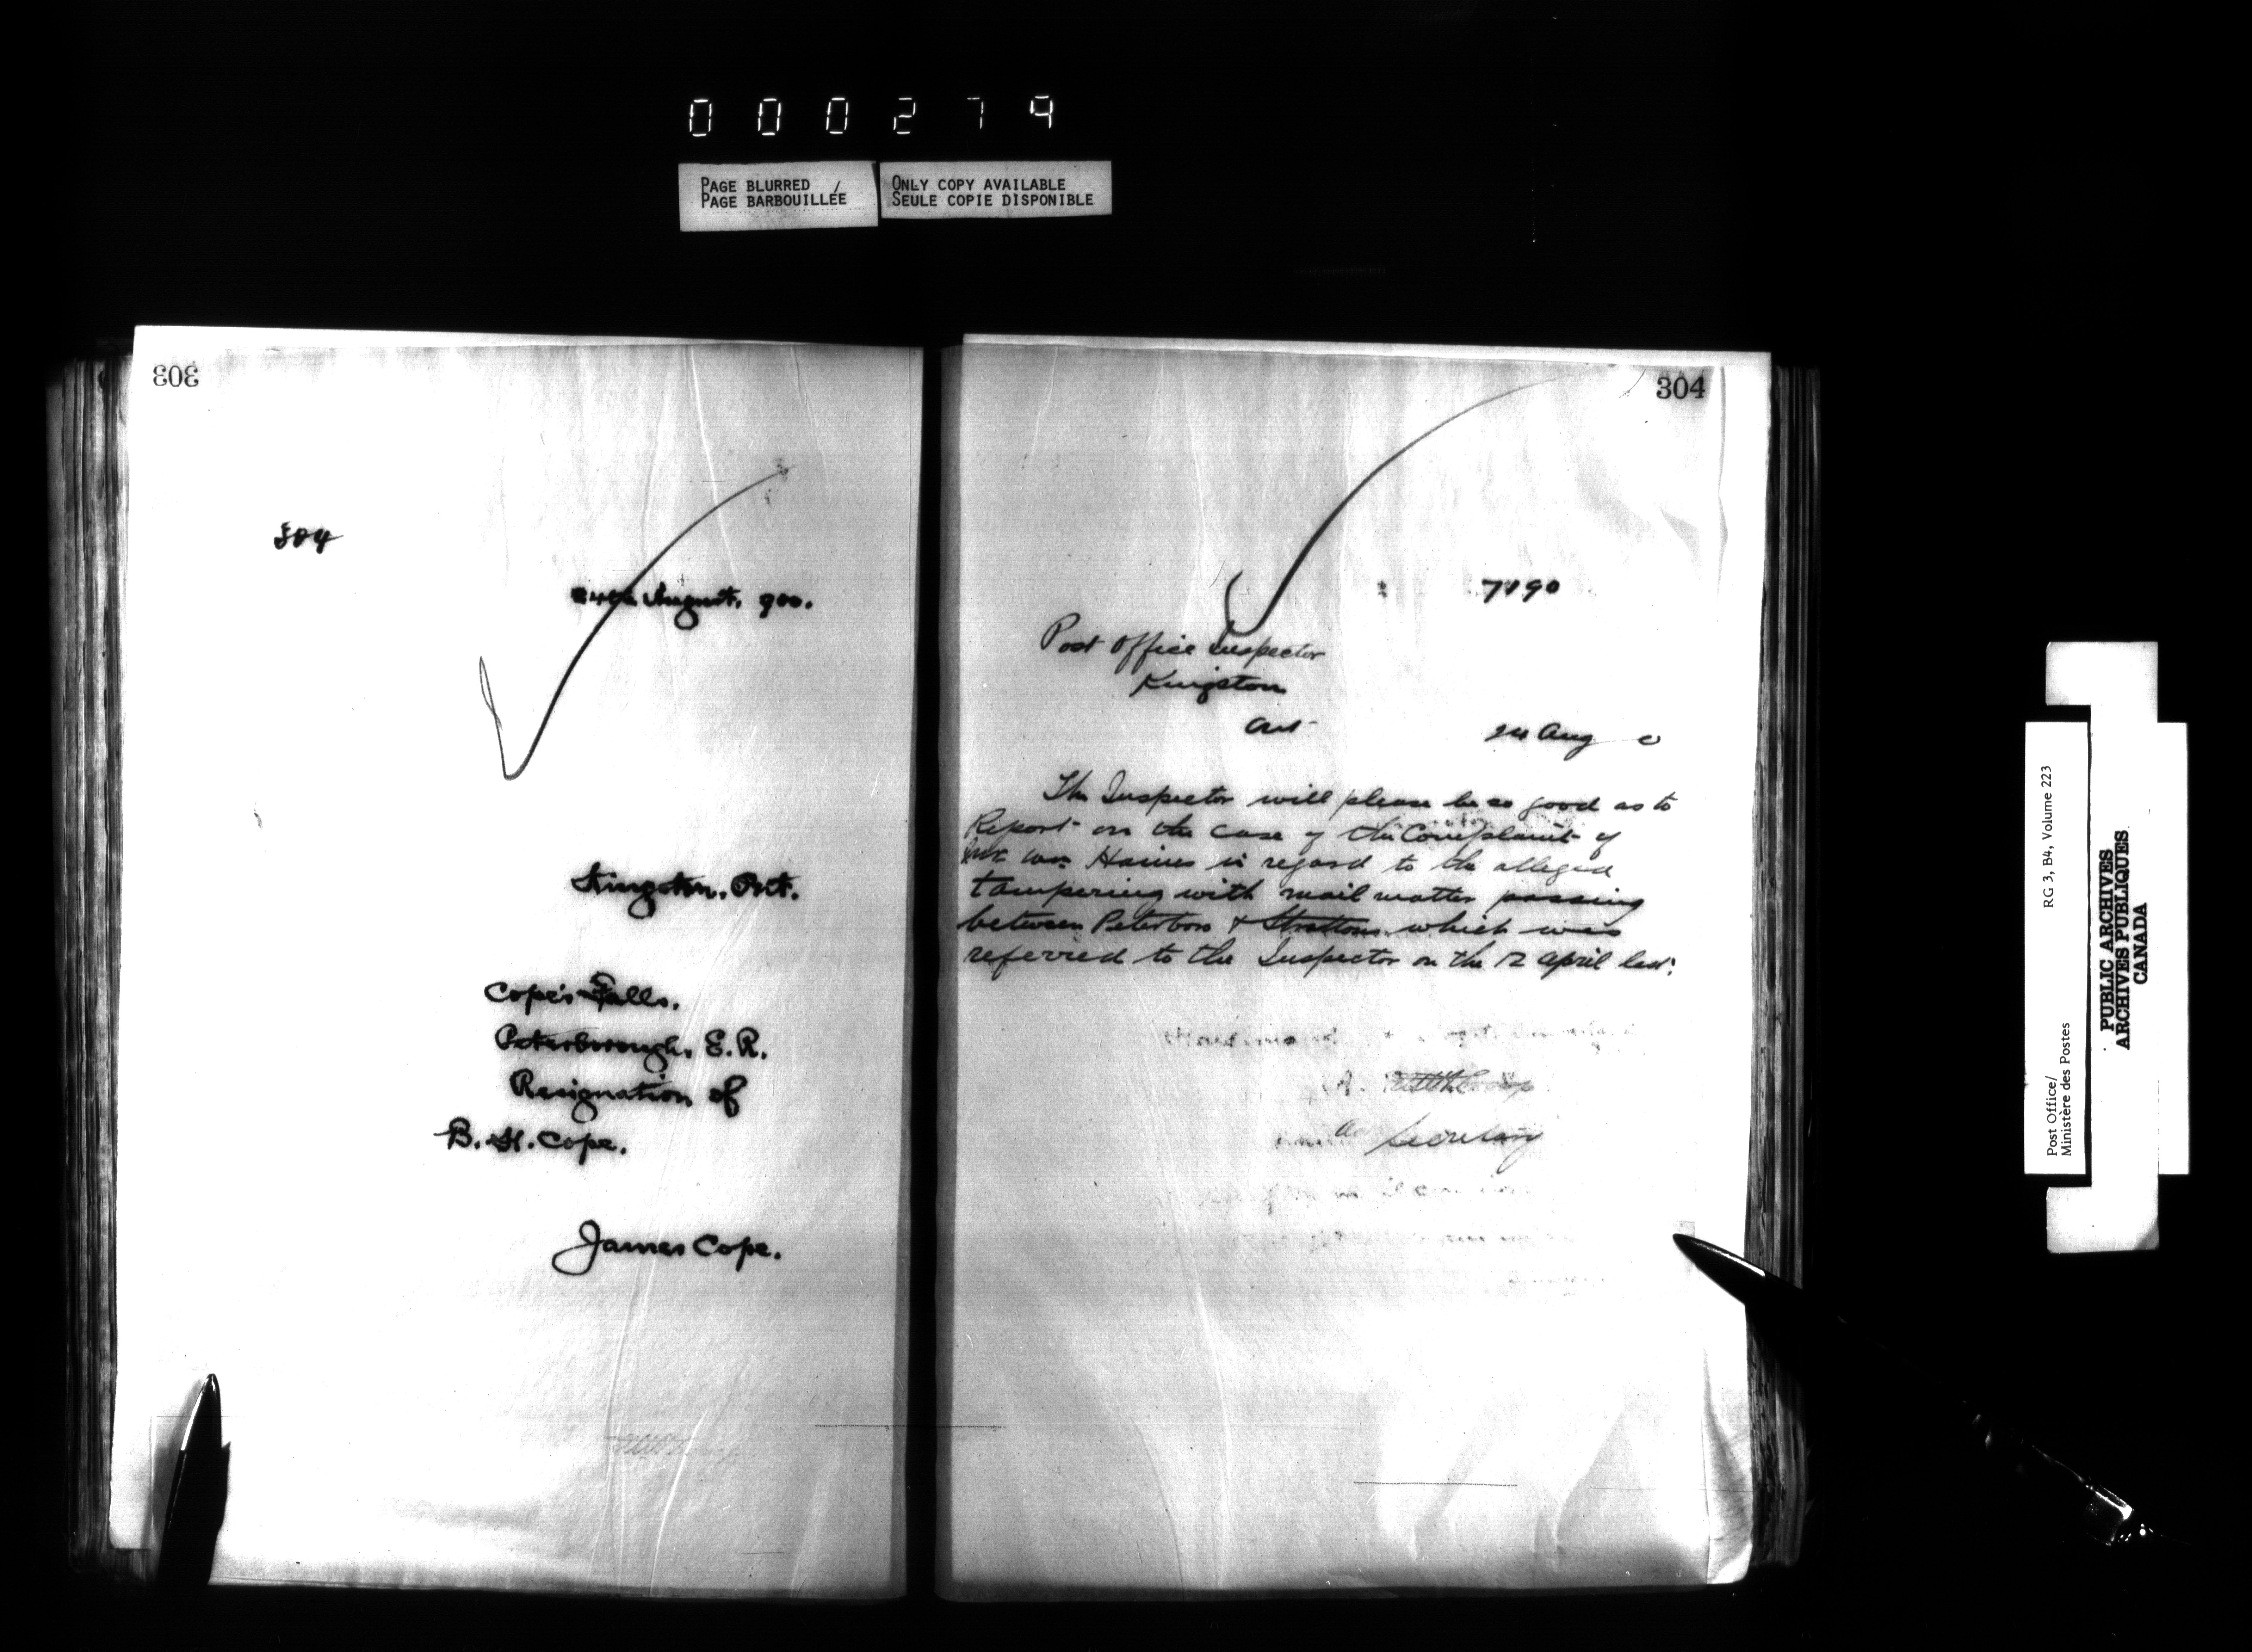 000279
PAGE BLURRED /
PAGE BARBOUILLÉE
ONLY COPY AVAILABLE
SEULE COPIE DISPONIBLE
303
304
24th August. 900.
Kingston, Ont.
Cope's Falls.
Peterborough, E.R.
Resignation of
B. H. Cope.
James Cope.
304
Post Office Inspector
Kingston
Ont
24 Aug 0
The Inspector will please be so good as to
Report on the case of the Complaint of
Mr Wm Haines in regard to the alleged
tampering with mail matter passing
between Peterboro & Strattons which was
referred to the Inspector on the 12 April last.
Secretary
Post Office/
Ministère des Postes
RG 3, B4, Volume 223
PUBLIC ARCHIVES
ARCHIVES PUBLIQUES
CANADA